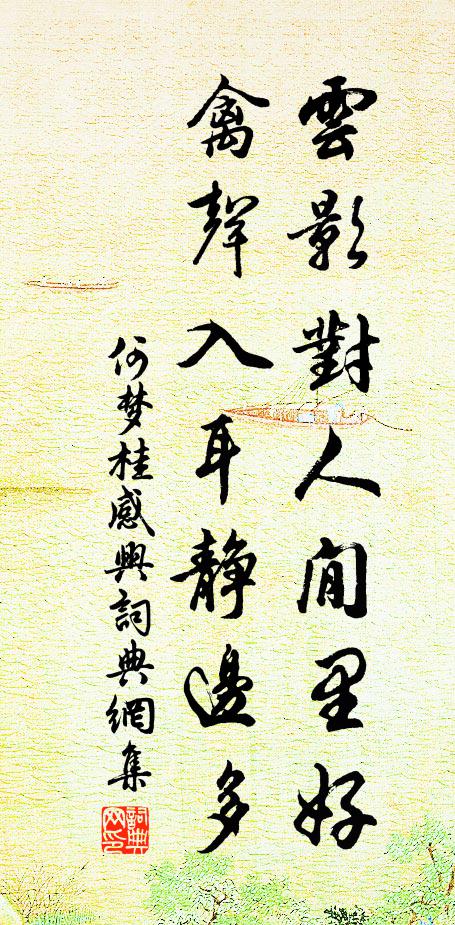 雲影對人閒里好
禽聲入耳静邊多
何梦桂感興詞典網集
詞典网印